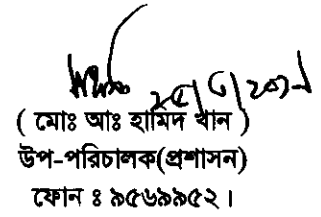 ( মোঃ আঃ হামিদ খান )
উপ-পরিচালক(প্রশাসন)
ফোন ঃ ৯৫৬৯৯৫২।